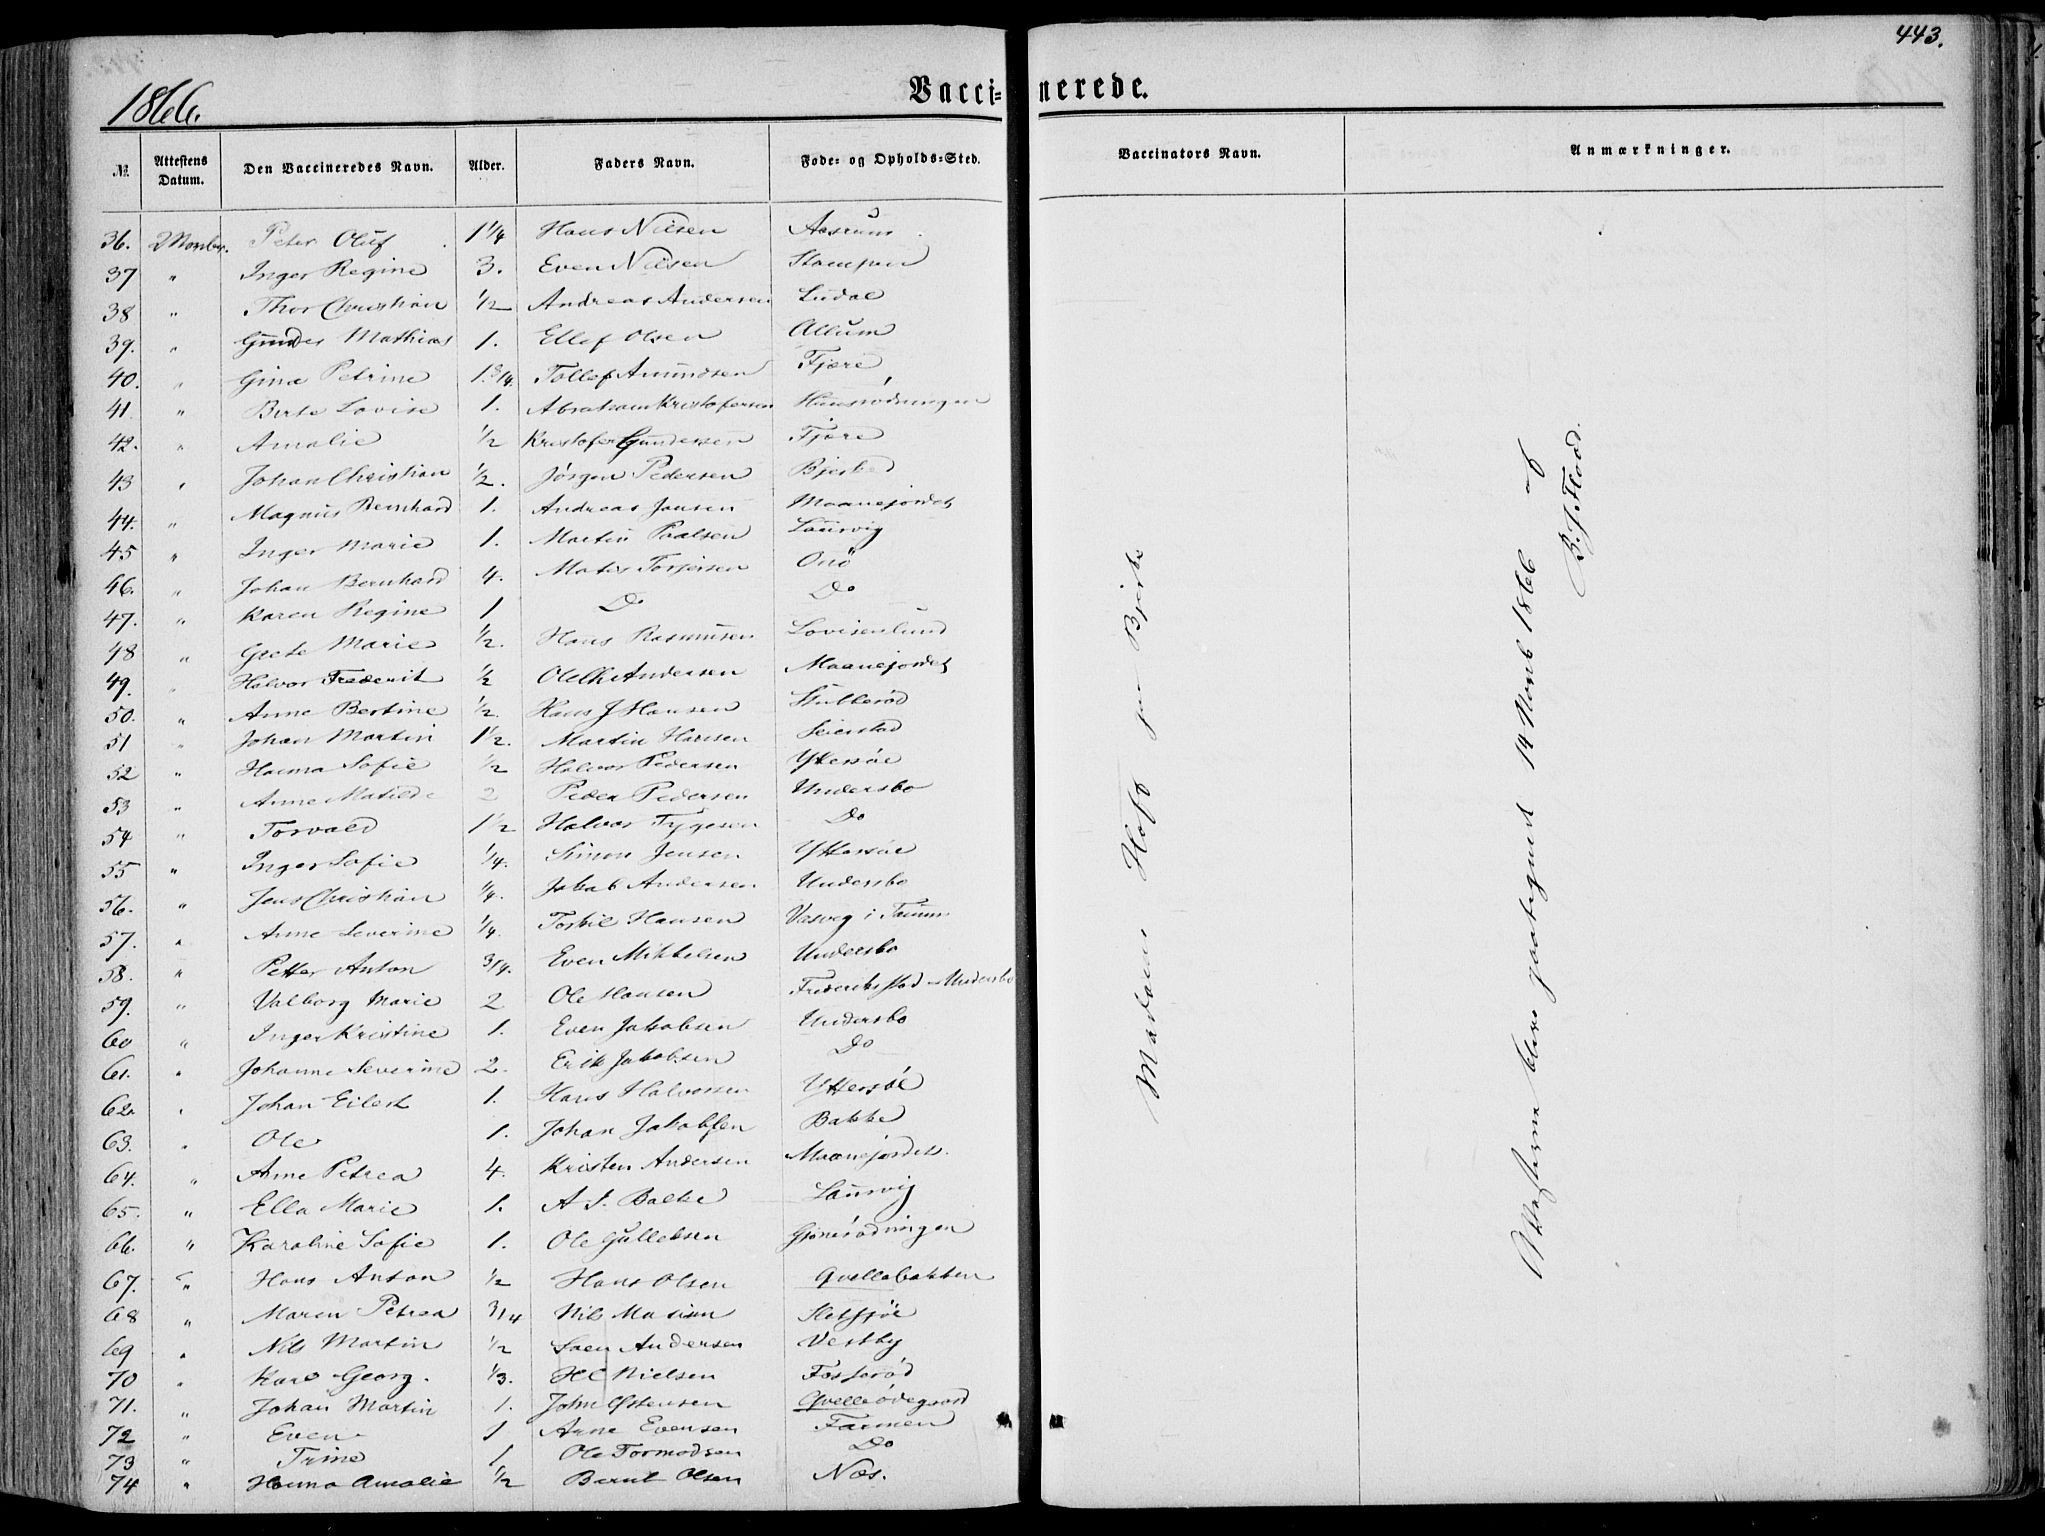 443.
1866.
Vacci= nerede.
№ Attestens Datum. Den Vaccineredes Navn. Alder. Faders Navn. Føde= og Opholds=Sted. Vaccinators Navn. Anmærkninger.
36. 2 Novbr. Peter Oluf 1 1/4 Hans Nilsen Aasrum
37 " Inger Regine 3. Even Nilsen Stampen
38 " Thor Christian 1/2 Andreas Andersen
39. " Gunder Mathias 1. Ellef Olsen Allum
40. " Gina Petrine 1. 3/4. Tollef Amundsen Fjære
41. " Berte Lovise 1. Abraham Kristofersen
42. " Amalie 1/2 Kristofer Gundersen Fjære
43 " Johan Christian 1/2. Jörgen Pedersen
44. " Magnus Bernhard 1. Andreas Jansen Maanejordet
45 " Inger Marie 1. Martin Paalsen Laurvig
46. " Johan Bernhard 4. Mates Torjersen Onö
47. " Karen Regine 1 Do Do
48 " Grete Marie 1/2. Hans Rasmusen Lovisenlund
49. " Halvor Frederik 1/2 Ole Chr Andersen Maanejordet
50. " Anne Bertine 1/2. Hans J Hansen Stubberöd
51 " Johan Martin 1 1/2. Martin Hansen Seierstad
52 " Hanna Sofie 1/2 Halvor Pedersen Yttersöe
53 " Anne Matilde 2 Peder Pedersen Undersbo
54 " Torvald 1 1/2 Halvor Tygesen Do
55 " Inger Sofie 1/4. Simon Jensen Yttersöe
56. " Jens Christian 1/4. Jakob Andersen Undersbo
57. " Anne Severine 1/4. Torkil Hansen Vasveg i Tanum
58. " Petter Anton 3/4. Even Mikkelsen Undersbo
59. " Valborg Marie 2 Ole Hansen Frederikstad - Undersbo
60 " Inger Kristine 1. Even Jakobsen Undersbo
61. " Johanne Severine 2. Erik Jakobsen Do
62. " Johan Eilert 1. Hans Halvorsen Yttersöe
63. " Ole 1. Johan Jakobsen Bakke
64. " Anne Petrea 4. Kristen Andersen Maanejordet.
65. " Ella Marie 1. A. S. Balke Laurvig
66. " Karoline Sofie 1. Ole Gulleksen Gjonerödningen
67. " Hans Anton 1/2 Hans Olsen Qvellebakken
68 " Maren Petrea 3/4 Nils Matisen Sletsjöe
69 " Nils Martin 1/2 Sören Andersen Vestby
70 " Karl Georg. 1/3. H C Nielsen Fosserød
71. " Johan Martin 1. John Östensen Qvelleödegaard
72 " Even 1 Arne Evensen Farmen
73 " Trine 1 Ole Tormodsen Do
74 " Hanna Amalie 1/2 Bernt Olsen Næs.
Madame Hoff paa Bjerke
Attesterne bleve paategned 14 Novb 1866 af
B. J. Flood.